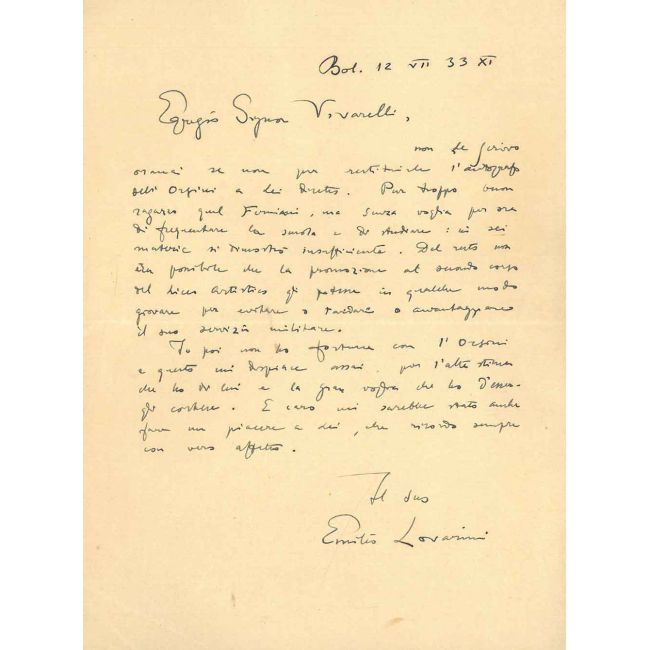 Bol. 12 VII 33 XI
Egregio Signor Vivarelli,
non Le scrivo
oramai se non per restituirle l'autografo
dell'Orsini a Lei diretto. Pur troppo buon
ragazzo quel Fornari, ma senza voglia per ora
di frequentare la scuola e di studiare: in sei
materie si dimostrò insufficiente. Del resto non
era possibile che la promozione al secondo corso
del Liceo Artistico gli potesse in qualche modo
giovare per evitare o ritardare o avvantaggiare
il suo servizio militare.
Io poi non ho fortuna con l'Orsini
e questo mi dispiace assai per l'alta stima
che ho di lui e la gran voglia che ho d'esser-
gli cortese. E caro mi sarebbe stato anche
fare un piacere a Lei, che ricordo sempre
con vero affetto.
Il suo
Emilio Lovarini